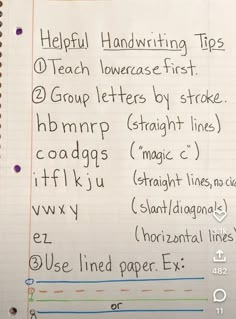 Helpful Handwriting Tips
① Teach lowercase first.
② Group letters by stroke.
hbmnrp (straight lines)
coadgqs ("magic c")
itflkju (straight lines, no
vwxy (slant/diagonals)
ez (horizontal lines)
③ Use lined paper. Ex:
or
482
11